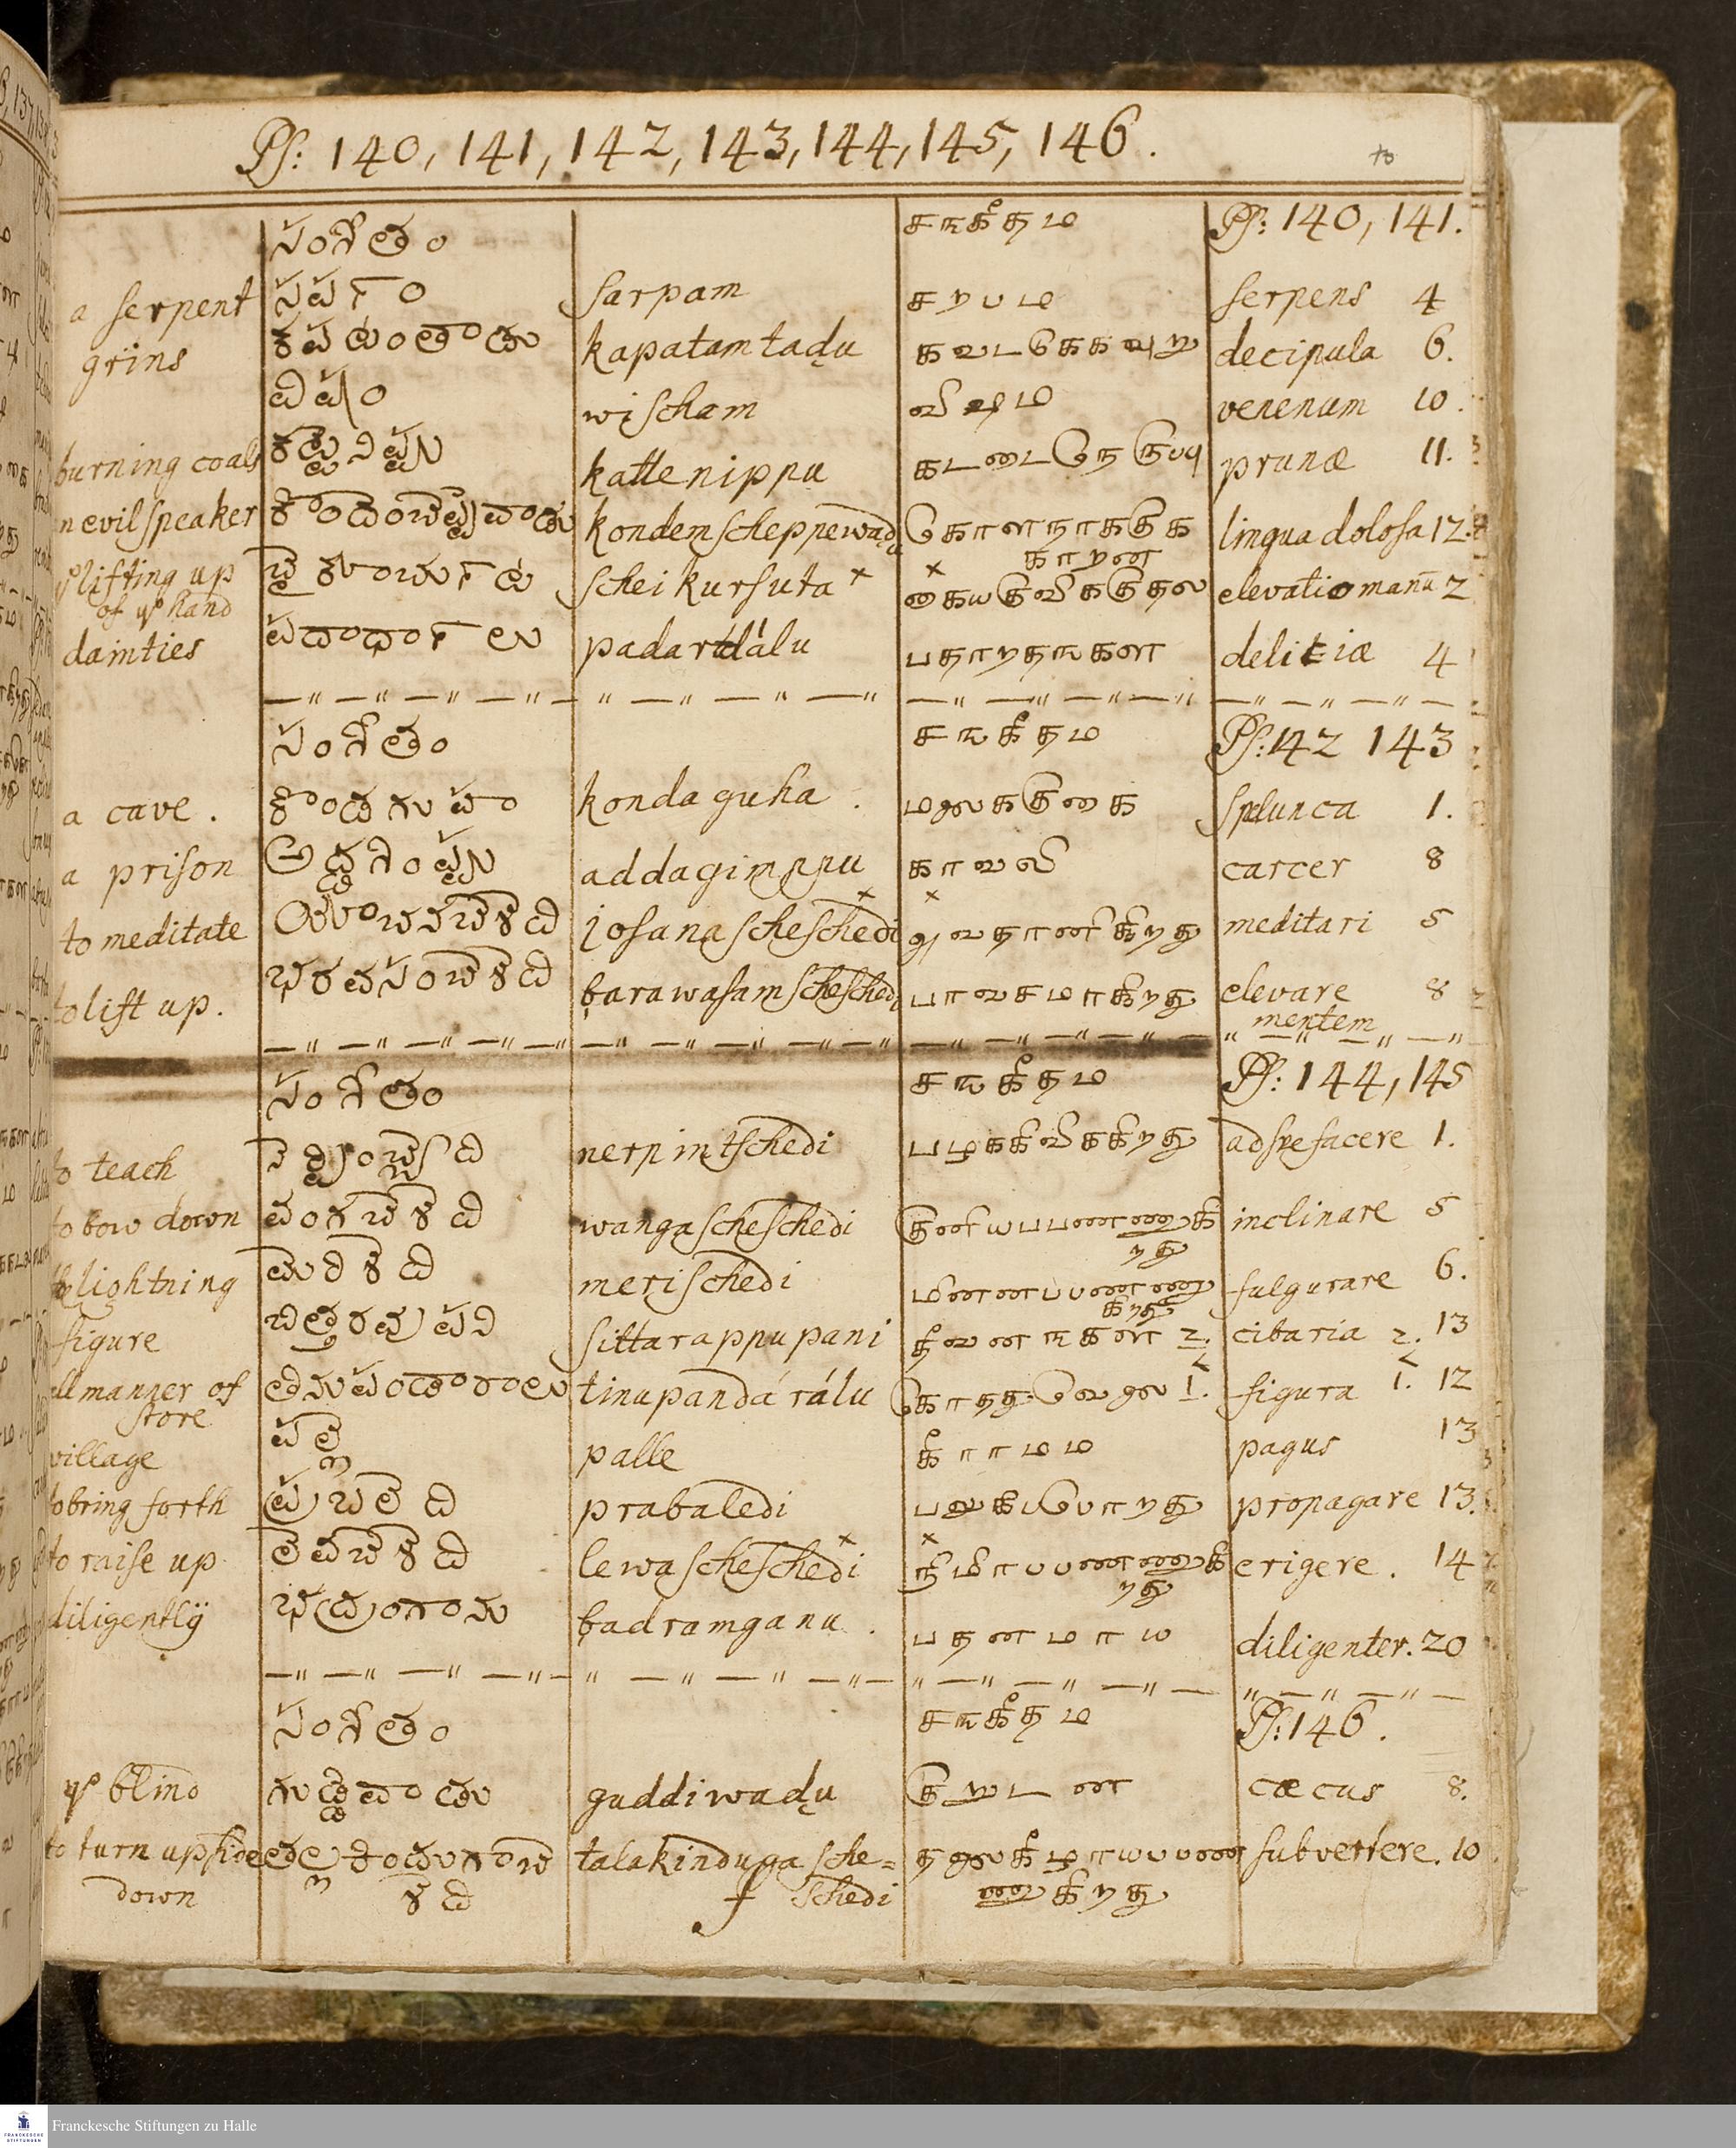 Ps: 140, 141, 142, 143, 144, 145, 146.
సంగీతం சஙகீதம Ps: 140, 141.
a serpent సపⲅం sarpam சறபம serpens 4
grins కపటంతాడు kapatam tadu கவடகெகவுறு decipula 6.
విషం wischam விஷம venenum 10.
burning coals కట్టెనిప్పు katte nippu கடடைநெருபபு prunæ 11.
n evil speaker కొండెంచెప్పేవాడు kondem scheppewadu கோளநாககுக lingua dolosa 12.
காறன
lifting up చెై కూచుర్ట schei kursuta × × கையகுவிககுதல elevatio manu 2
of yͤ hand
dainties పదాధార్లు padartdálu பதாறதஙகள delitiæ 4
సంగీతం சஙகீதம Ps: 142 143
a cave. కొండగుహా konda guha. மலைககுகை spelunca 1.
a prison అడ్డగింప్పు addagimppu காவலி carcer 8
to meditate యోచనచేసేది josana scheschedi × × அவதானிகிறது meditari 5
to lift up. భరవసంచేసేది barawasam scheschedi பாவசமாகிறது elevare 8
mentem
సంగీతం சஙகீதம Ps: 144, 145
to teach నెర్పించ్చేది nerpintschedi பழககிவிககிறது adsvefacere 1.
to bow down వంగచేసేది wanga scheschedi குனியபபணணுகி inclinare 5
றது
lightning మెరిసేది merischedi மினனபபணணு fulgurare 6.
கிறது
figure చిత్తరప్పుపని sittarappu pani தீவனஙகள 2. cibaria 2. 13
all manner of తినుపండారాలు tinupandárálu கொதது வேலை 1. figura 1. 12
store
village పల్లె palle கிராமம pagus 13
to bring forth ప్రబలేది prabaledi பலுகிபபோறது propagare 13.
to raise up లేవచేసేది lewa scheschedi × × நிமிரபபணணுகி erigere. 14
றது
diligentlÿ భద్రంగాను badramganu. பதனமாய diligenter. 20
సంగీతం சஙகீதம Ps: 146.
yͤ blind గుడ్డివాడు guddiwadu குறுடன cæcus 8.
to turn upside తల్లకిండుగాచే talakinduga sche= தலைகீழாயபபண subvertere. 10
down సేది schedi ணுகிறது
Franckesche Stiftungen zu Halle